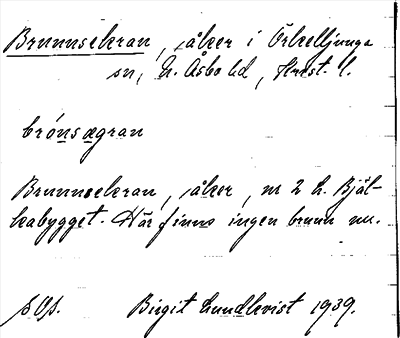 Brunnsekran, åker i Örkelljunga
sn, N. Åsbo hd, Krist. l.
brónsægran
Brunnsekran, åker, nr 2 N. Bjäl-
kabygget. Här finns ingen brunn nu.
Birgit Lundkvist 1939.